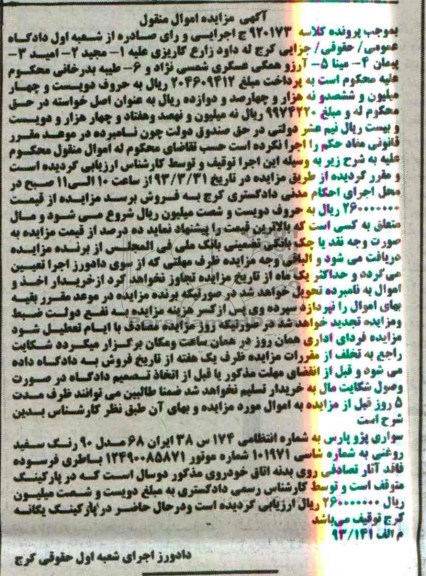 آگهی مزایده اموال منقول
بموجب پرونده کلاسه ۹۲۰۱۷۳ ج اجرایی و رای صادره از شعبه اول دادگاه
عمومی/ حقوقی/ جزایی کرج له داود زارع کاریزی علیه ۱- مجید ۲- امید ۳-
پیمان ۴- مینا ۵- آرزو همگی عسکری شمسی نژاد و ۶- طیبه بدرخانی محکوم
علیه محکوم است به پرداخت مبلغ ۲۰۴۶۰۹۴۱۲ ریال به حروف دویست و چهار
میلیون و ششصدو نه هزار و چهارصد و دوازده ریال به عنوان اصل خواسته در حق
محکوم له و مبلغ ۹۹۷۴۲۲۰ ریال نه میلیون و نهصد وهفتاد و چهار هزار و دویست
و بیست ریال نیم عشر دولتی در حق صندوق دولت چون نامبرده در موعد مقرر
قانونی مفاد حکم را اجرا نکرده است حسب تقاضای محکوم له اموال منقول محکوم
علیه به شرح زیر به وسیله این اجرا توقیف و توسط کارشناس ارزیابی گردیده است
و مقرر گردیده از طریق مزایده در تاریخ ۹۳/۳/۳۱ از ساعت ۱۰ الی۱۱ صبح در
محل اجرای احکام مدنی دادگستری کرج به فروش برسد مزایده از قیمت
۲۶۰۰۰۰۰۰۰ ریال به حروف دویست و شصت میلیون ریال شروع می شود و مال
متعلق به کسی است که بالاترین قیمت را پیشنهاد نماید ده درصد از قیمت مزایده به
صورت وجه نقد یا چک بانکی تضمینی بانک ملی فی المجلس از برنده مزایده
دریافت می شود و الباقی وجه مزایده ظرف مهلتی که از سوی دادورز اجرا تعیین
می گردد و حداکثر یک ماه از تاریخ مزایده تجاوز نخواهد کرد ازخریدار اخذ و
اموال به نامبرده تحویل خواهد شد در صورتیکه برنده مزایده در موعد مقرر بقیه
بهای اموال را نپردازد سپرده وی پس ازکسر هزینه مزایده به نفع دولت ضبط
ومزایده تجدید خواهدشد در صورتیکه روز مزایده مصادف با ایام تعطیل شود
مزایده فردای اداری همان روز در همان ساعت ومکان برگزار میگردد شکایت
راجع به تخلف از مقررات مزایده ظرف یک هفته از تاریخ فروش به دادگاه داده
می شود و قبل از انقضای مهلت مذکور یا قبل از اتخاذ تصمیم دادگاه در صورت
وصول شکایت مال به خریدار تسلیم نخواهد شد ضمنا طالبین می توانند ظرف مدت
۵ روز قبل از مزایده به اموال مورد مزایده و بهای آن طبق نظر کارشناس بدین
شرح است
سواری پژو پارس به شماره انتظامی ۱۷۴ س ۳۸ ایران ۶۸ مدل ۹۰ رنگ سفید
روغنی به شماره شاسی ۱۰۱۹۷۱ شماره موتور ۱۲۴۹۰۰۸۵۸۷۱ باطری فرسوده
فاقد آثار تصادفی روی بدنه اتاق خودروی مذکور دوسال است که در پارکینگ
متوقف است و توسط کارشناس رسمی دادگستری به مبلغ دویست و شصت میلیون
ریال ۲۶۰۰۰۰۰۰۰ ریال ارزیابی گردیده است ودرحال حاضر در پارکینگ یگانه
کرج توقیف می‌باشد
م الف ۹۳/۱۴۱
دادورز اجرای شعبه اول حقوقی کرج